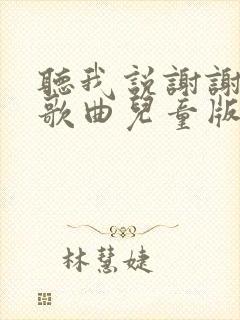 聽我說謝謝
歌曲兒童版
林慧婕